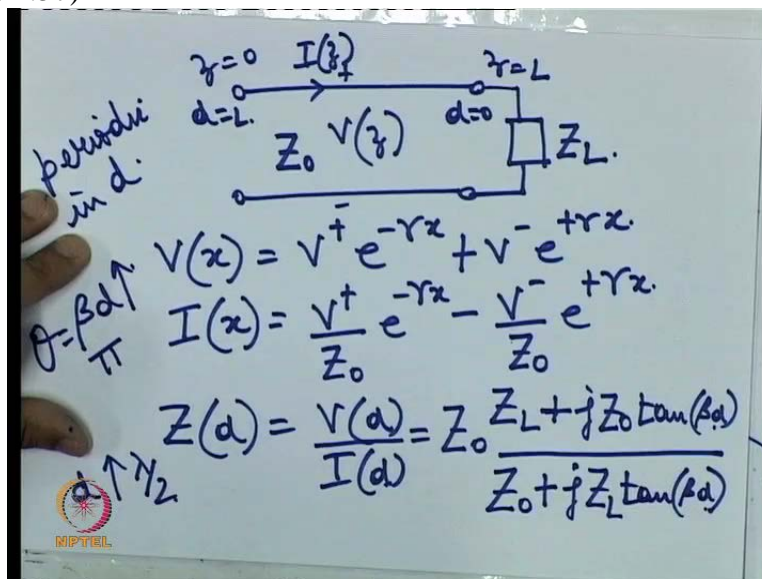 z=0 I(z) z=L
d=L. + d=0
Z₀ V(z) Z_L.
-
periodic
in d.
V(x) = V⁺ e^{-γx} + V⁻ e^{+γx}.
θ=βd↑
π
I(x) = V⁺/Z₀ e^{-γx} - V⁻/Z₀ e^{+γx}.
Z(d) = V(d)/I(d) = Z₀ (Z_L + jZ₀ tan(βd))/(Z₀ + jZ_L tan(βd))
d↑ λ/2
NPTEL